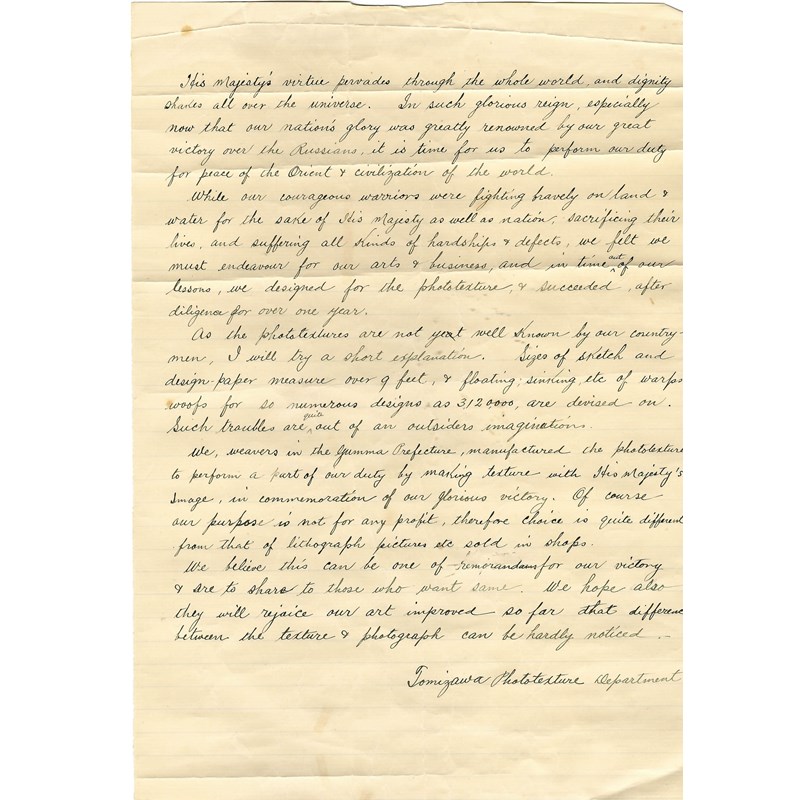 His Majesty's virtue pervades through the whole world, and dignity
shakes all over the universe. In such glorious reign, especially
now that our nation's glory was greatly renowned by our great
victory over the Russians, it is time for us to perform our duty
for peace of the Orient & civilization of the world.
While our courageous warriors were fighting bravely on land &
water for the sake of His Majesty as well as nation, sacrificing their
lives, and suffering all kinds of hardships & defects, we felt we
must endeavour for our arts & business, and in time out of our
lessons, we designed for the phototexture, & succeeded, after
diligence for over one year.
As the phototextures are not yet well known by our country-
men, I will try a short explanation. Sizes of sketch and
design-paper measure over 9 feet, & floating, sinking, etc of warps
woofs for so numerous designs as 3120000, are devised on.
Such troubles are quite out of an outsiders imaginations.
We, weavers in the Gumma Prefecture, manufactured the phototexture
to perform a part of our duty by making texture with His Majesty's
Image, in commemoration of our glorious victory. Of course
our purpose is not for any profit, therefore choice is quite different
from that of lithograph pictures etc sold in shops.
We believe this can be one of memorandums for our victory
& are to share to those who want same. We hope also
they will rejoice our art improved so far that differenc
between the texture & photograph can be hardly noticed.
Tomizawa Phototexture Department